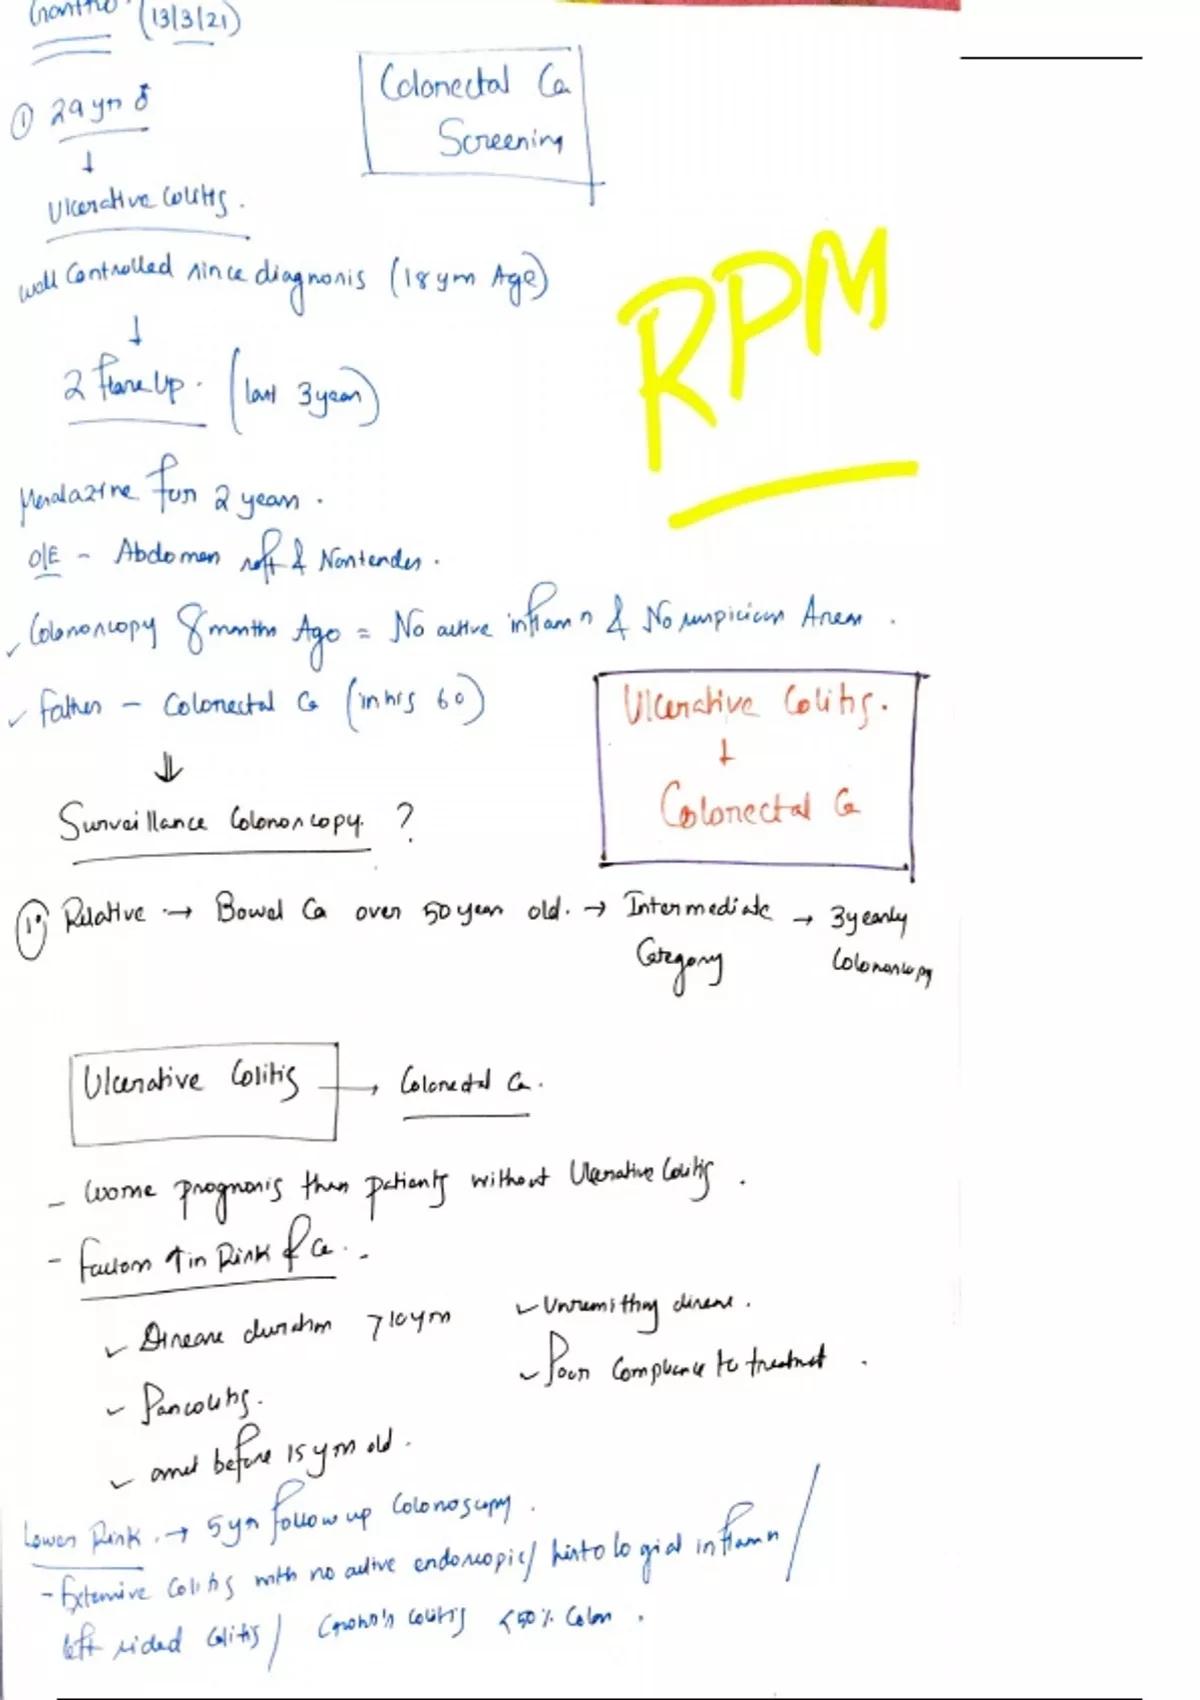 Gastro (13/3/21)
Colorectal Ca
Screening
① 29 yr ♂
↓
Ulcerative Colitis.
well Controlled since diagnosis (18 yrs Age)
↓
2 flare up. (last 3 years)
RPM
Mesalazine for 2 years.
O/E - Abdomen soft & Nontender.
✓ Colonoscopy 8 months Ago = No active inflamn & No suspicious Areas.
✓ father - Colorectal Ca (in his 60)
⇓
Ulcerative Colitis.
↓
Colorectal Ca
Survaillance Colonoscopy. ?
1° Relative → Bowel Ca over 50 years old. → Intermediate → 3 yearly
Category Colonoscopy
Ulcerative Colitis → Colorectal Ca.
- worse prognosis than patients without Ulcerative Colitis.
- factors ↑ in Risk of Ca. -
✓ Disease duration >10 yrs ✓ Unremitting disease.
✓ Pancolitis. ✓ Poor Compliance to treatmet.
✓ onset before 15 yrs old.
Lower Risk. → 5 yr follow up Colonoscopy.
- Extensive Colitis with no active endoscopic/ histological inflamn /
left sided Colitis / Crohn's Colitis <50% Colon.